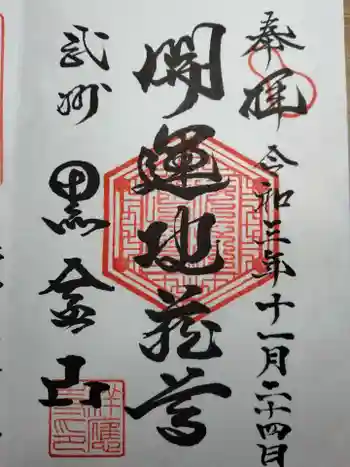 奉拝 令和三年十一月二十四日
開運地蔵尊
武州 黒金山
祥應寺印